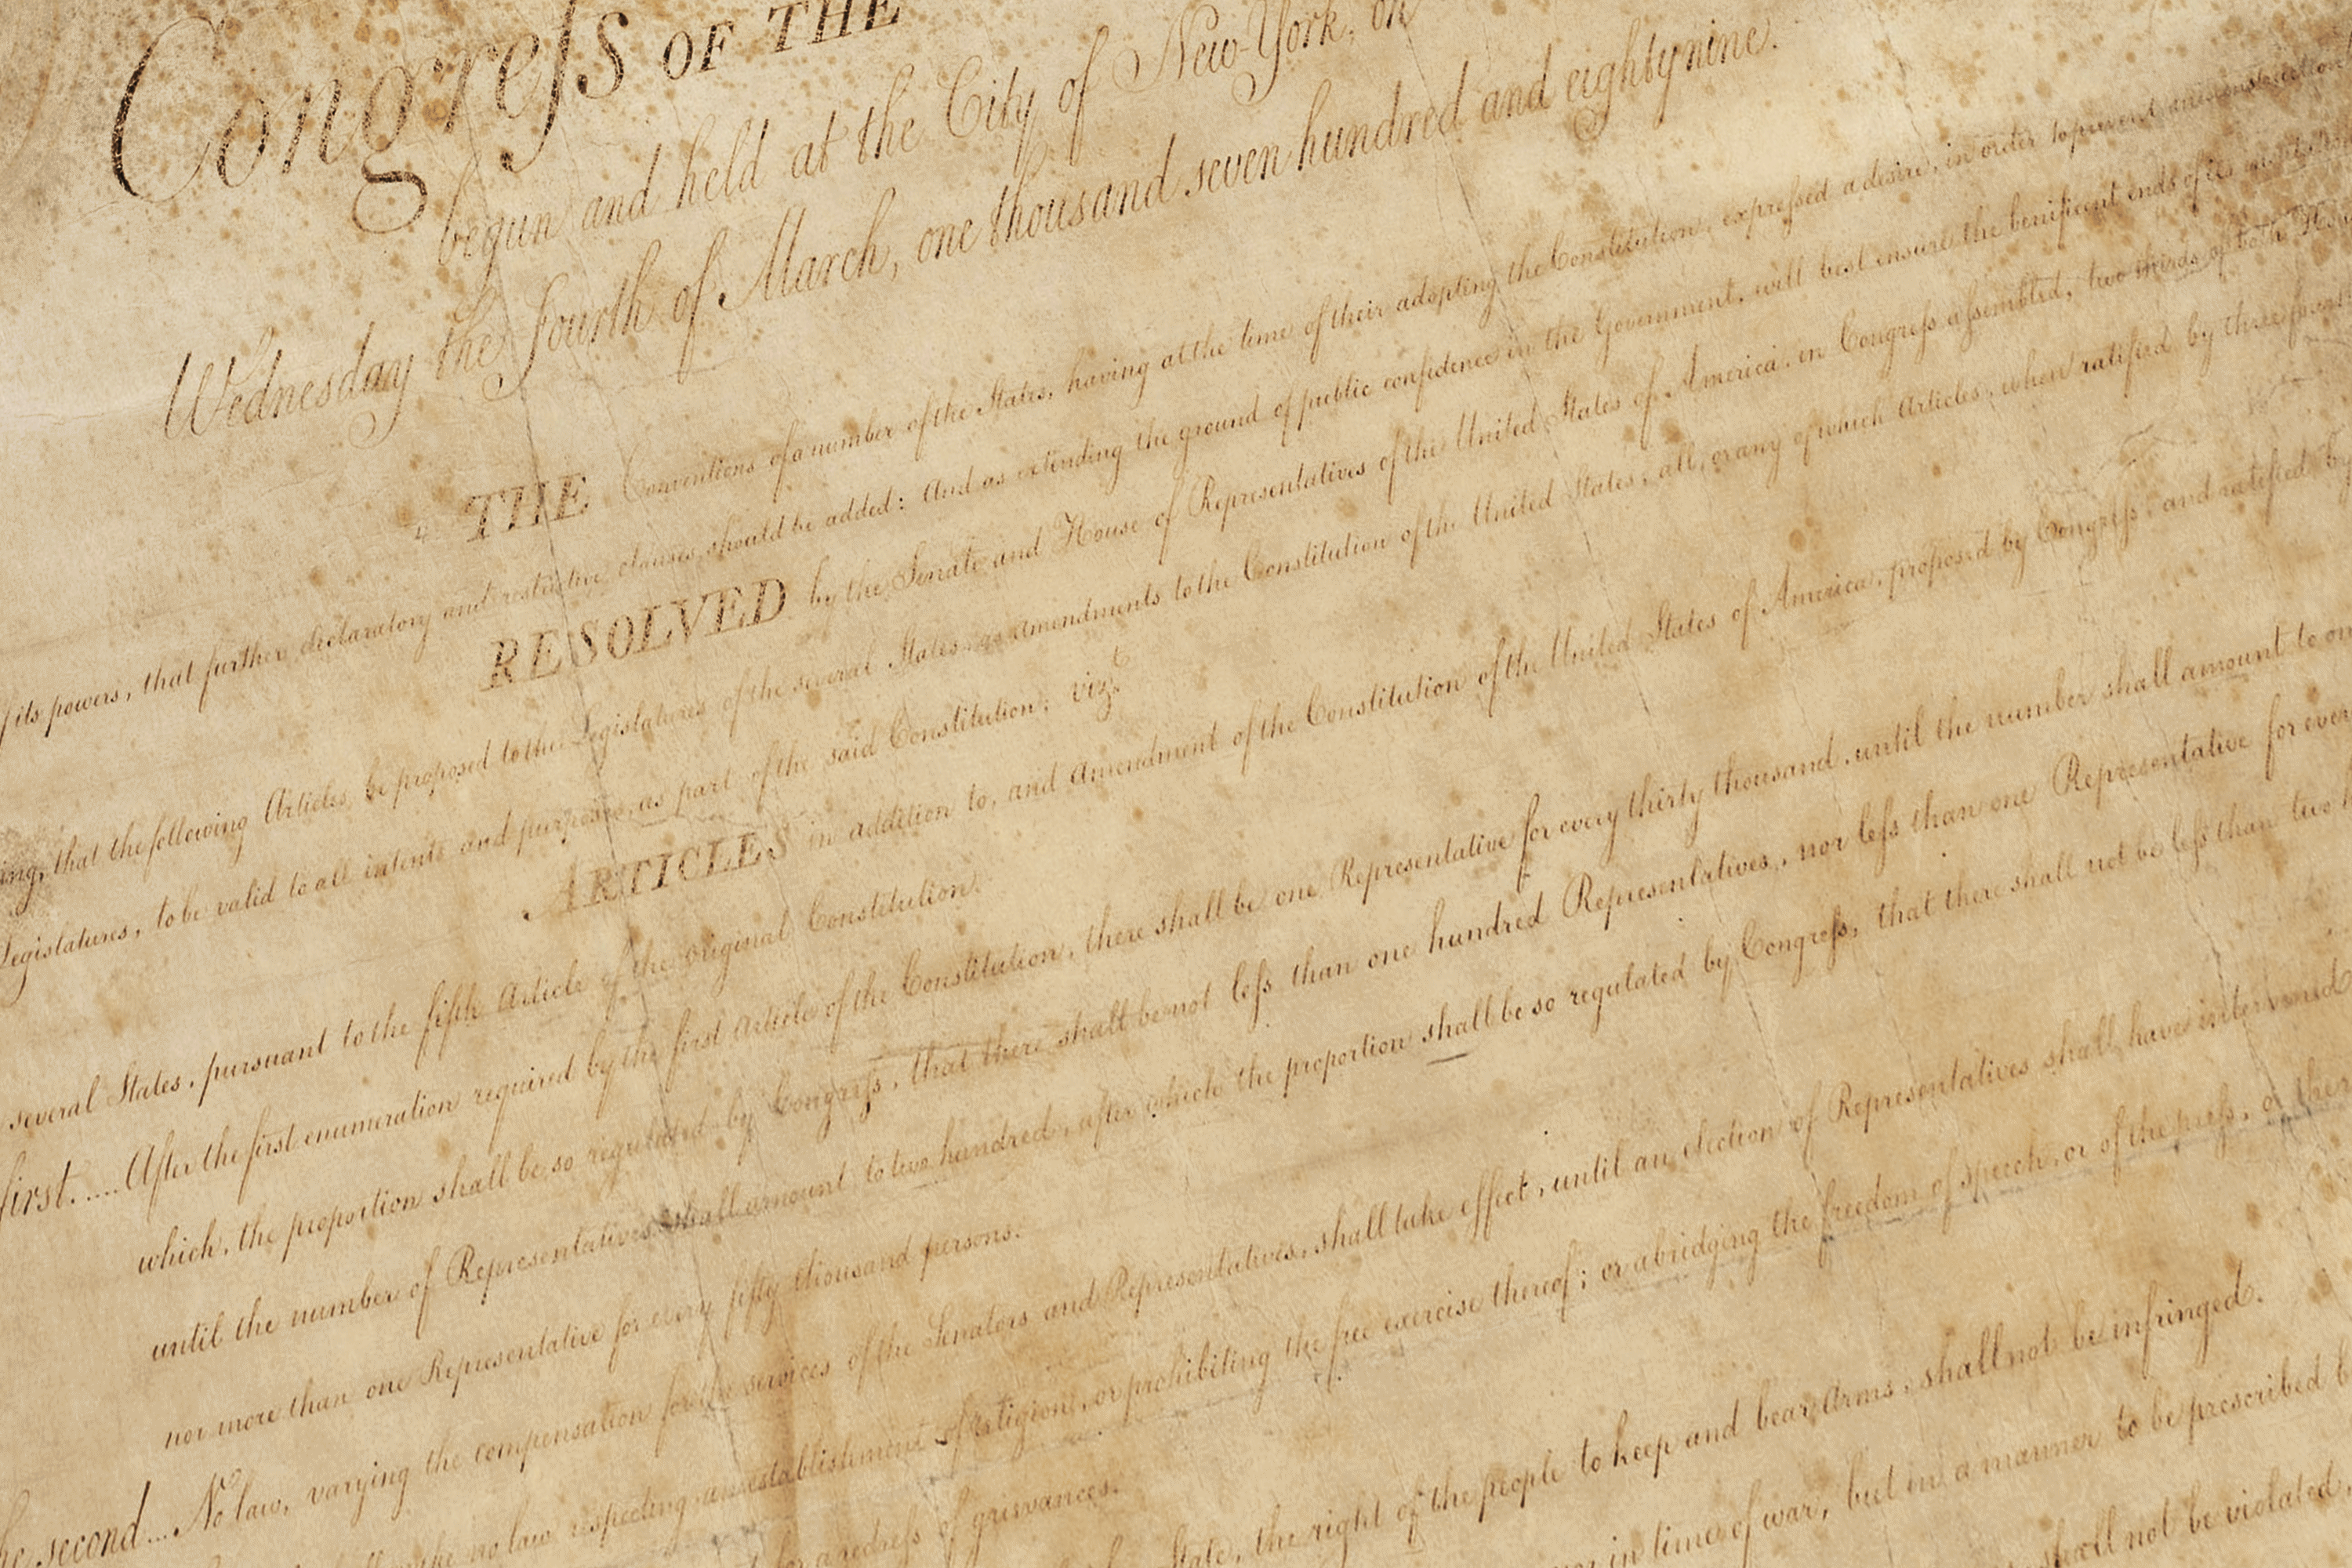 Congress OF THE
begun and held at the City of New-York, on
Wednesday the Fourth of March, one thousand seven hundred and eighty nine.
THE Conventions of a number of the States, having at the time of their adopting the Constitution, expressed a desire, in order to prevent misconstruction
f its powers, that further declaratory and restrictive clauses should be added: And as extending the ground of public confidence in the Government, will best ensure the benificent ends of its
RESOLVED by the Senate and House of Representatives of the United States of America, in Congress assembled, two thirds of both
ing, that the following Articles be proposed to the Legislatures of the several States, as amendments to the Constitution of the United States, all, or any of which Articles, when ratified by three
Legislatures, to be valid to all intents and purposes, as part of the said Constitution; vizt
ARTICLES in addition to, and Amendment of the Constitution of the United States of America, proposed by Congress, and ratified by
several States, pursuant to the fifth Article of the original Constitution.
first..... After the first enumeration required by the first Article of the Constitution, there shall be one Representative for every thirty thousand, until the number shall amount to on
which, the proportion shall be so regulated by Congress, that there shall be not less than one hundred Representatives, nor less than one Representative for ever
until the number of Representatives shall amount to two hundred, after which the proportion shall be so regulated by Congress, that there shall not be less than two
nor more than one Representative for every fifty thousand persons.
second... No law, varying the compensation for the services of the Senators and Representatives, shall take effect, until an election of Representatives shall have intervened
no law respecting an establishment of religion, or prohibiting the free exercise thereof; or abridging the freedom of speech, or of the press, or the
for a redress of grievances.
State, the right of the people to keep and bear Arms, shall not be infringed.
in time of war, but in a manner to be prescribed
shall not be violated,